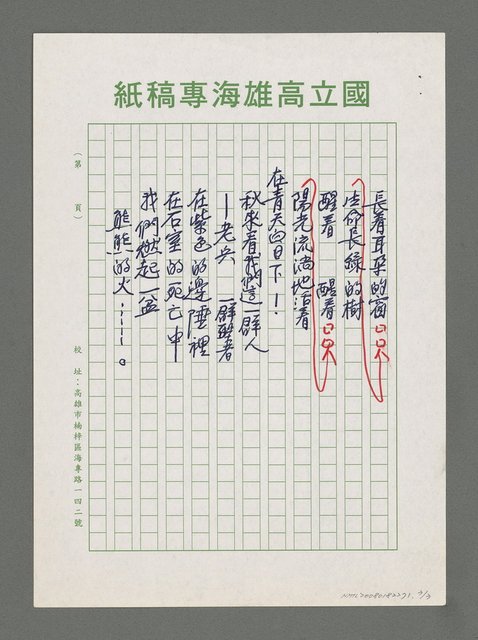 國立高雄海專稿紙
（第　頁）
校址：高雄市楠梓區海專路一四二號
長着耳朶的窗只只
生命長綠的樹
醒着　醒着只只
陽光流淌地活着
在青天白日下！
秋來看我們這一群人
－老兵　一群醉者
在紫色的邊陲裡
在石室的死亡中
我們燃起一盆
熊熊的火……。
NMTL20080182271. 3/3